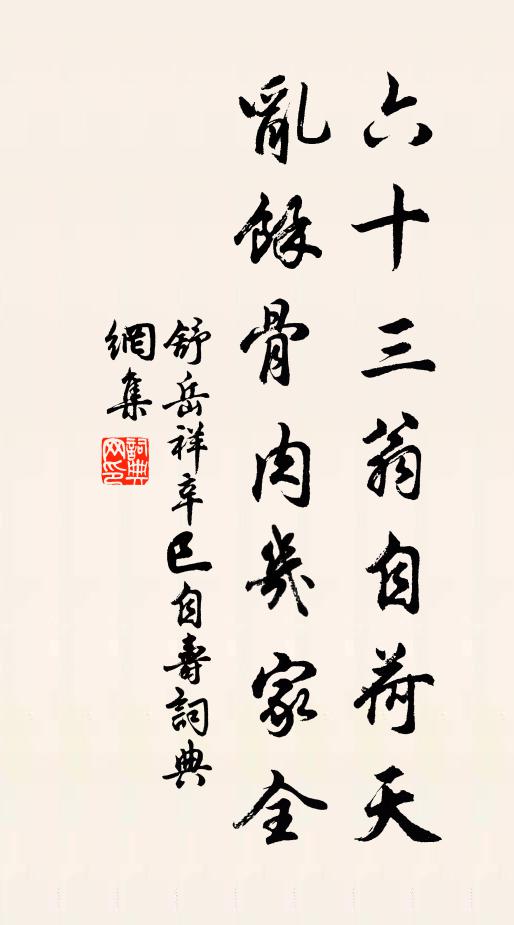 六十三翁自荷天
亂餘骨肉幾家全
舒岳祥辛巳自壽詞典
網集
詞典網印